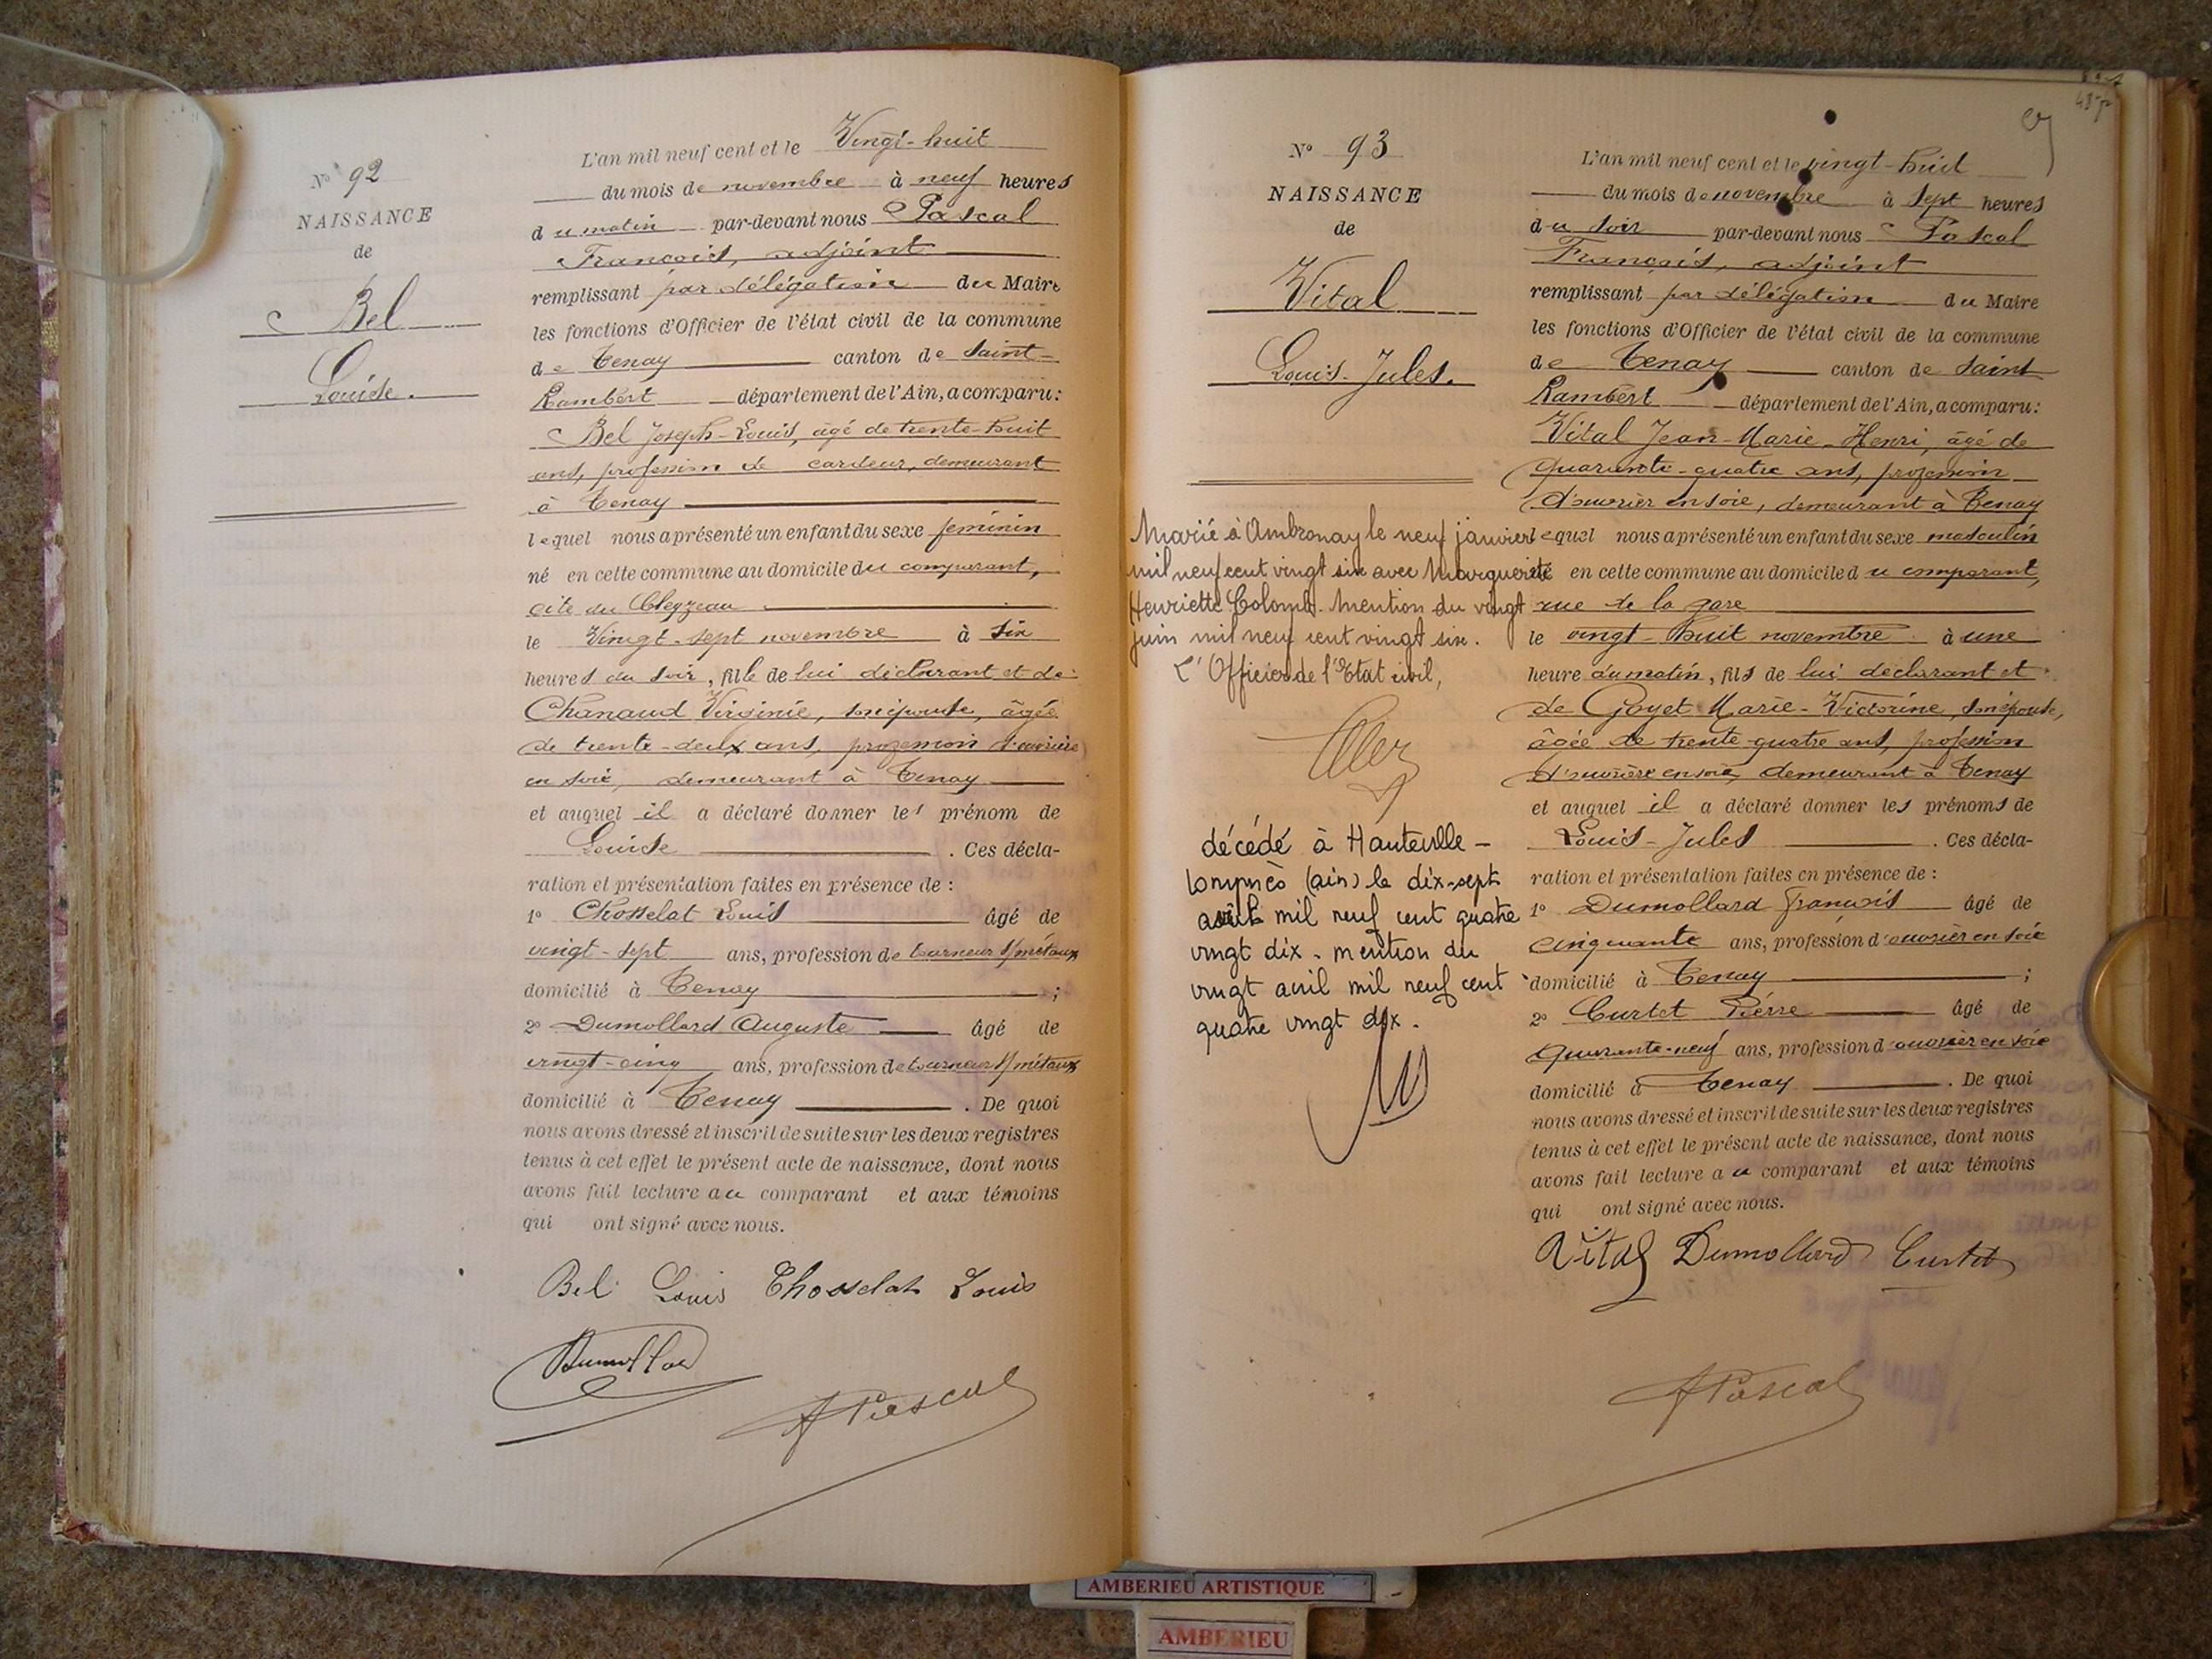 N° 92
NAISSANCE
de
Bel
Louise.
L'an mil neuf cent et le Vingt-huit
du mois de novembre à neuf heures
du matin par-devant nous Pascal
François, adjoint
remplissant par délégation du Maire
les fonctions d'Officier de l'état civil de la commune
de Tenay canton de Saint-
Rambert département de l'Ain, a comparu:
Bel Joseph-Louis, âgé de trente-huit
ans, profession de cardeur, demeurant
à Tenay
lequel nous a présenté un enfant du sexe féminin
né en cette commune au domicile du comparant,
cité du
le Vingt-sept novembre à six
heures du soir, fille de lui déclarant et de
Chanaud Virginie, son épouse, âgée
de trente-deux ans, profession d'ouvrière
en soie, demeurant à Tenay
et auquel il a déclaré donner le prénom de
Louise . Ces décla-
ration et présentation faites en présence de :
1° Chosselat Louis âgé de
vingt-sept ans, profession de tourneur s/métaux
domicilié à Tenay ;
2° Dumollard Auguste âgé de
vingt-cinq ans, profession de tourneur s/métaux
domicilié à Tenay . De quoi
nous avons dressé et inscrit de suite sur les deux registres
tenus à cet effet le présent acte de naissance, dont nous
avons fait lecture au comparant et aux témoins
qui ont signé avec nous.
Bel Louis Chosselat Louis
Dumollard
F Pascal
N° 93
NAISSANCE
de
Vital
Louis-Jules.
Marié à Ambronay le neuf janvier
mil neuf cent vingt six avec Marguerite
Henriette Colomb. Mention du vingt
juin mil neuf cent vingt six.
L'Officier de l'Etat civil,
décédé à Hauteville-
Lompnès (ain) le dix-sept
avril mil neuf cent quatre
vingt dix - mention du
vingt avril mil neuf cent
quatre vingt dix.
L'an mil neuf cent et le vingt-huit
du mois de novembre à sept heures
du soir par-devant nous Pascal
François, adjoint
remplissant par délégation du Maire
les fonctions d'Officier de l'état civil de la commune
de Tenay canton de Saint
Rambert département de l'Ain, a comparu:
Vital Jean-Marie-Henri, âgé de
quarante-quatre ans, profession
d'ouvrier en soie, demeurant à Tenay
lequel nous a présenté un enfant du sexe masculin
né en cette commune au domicile du comparant,
rue de la gare
le vingt-huit novembre à une
heure du matin, fils de lui déclarant et
de Goyet Marie-Victorine, son épouse,
âgée de trente-quatre ans, profession
d'ouvrière en soie, demeurant à Tenay
et auquel il a déclaré donner les prénoms de
Louis-Jules . Ces décla-
ration et présentation faites en présence de :
1° Dumollard François âgé de
cinquante ans, profession d'ouvrier en soie
domicilié à Tenay ;
2° Curtet Pierre âgé de
quarante-neuf ans, profession d'ouvrier en soie
domicilié à Tenay . De quoi
nous avons dressé et inscrit de suite sur les deux registres
tenus à cet effet le présent acte de naissance, dont nous
avons fait lecture au comparant et aux témoins
qui ont signé avec nous.
Vital Dumollard Curtet
F Pascal
AMBERIEU ARTISTIQUE
AMBERIEU